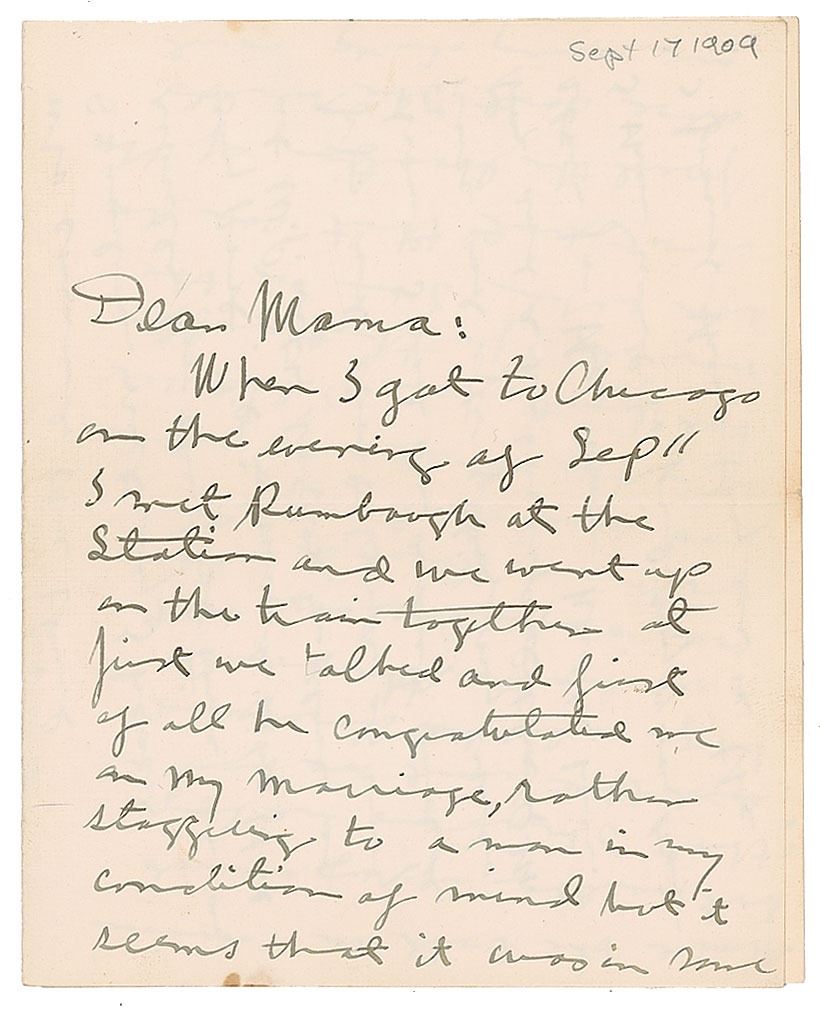 Sept 17 1909
Dear Mama:
When I got to Chicago
on the evening of Sep 11
I met Rumbough at the
Station and we went up
on the train together at
first we talked and first
of all he congratulated me
on my marriage, rather
staggering to a man in my
condition of mind but it
seems that it was in some